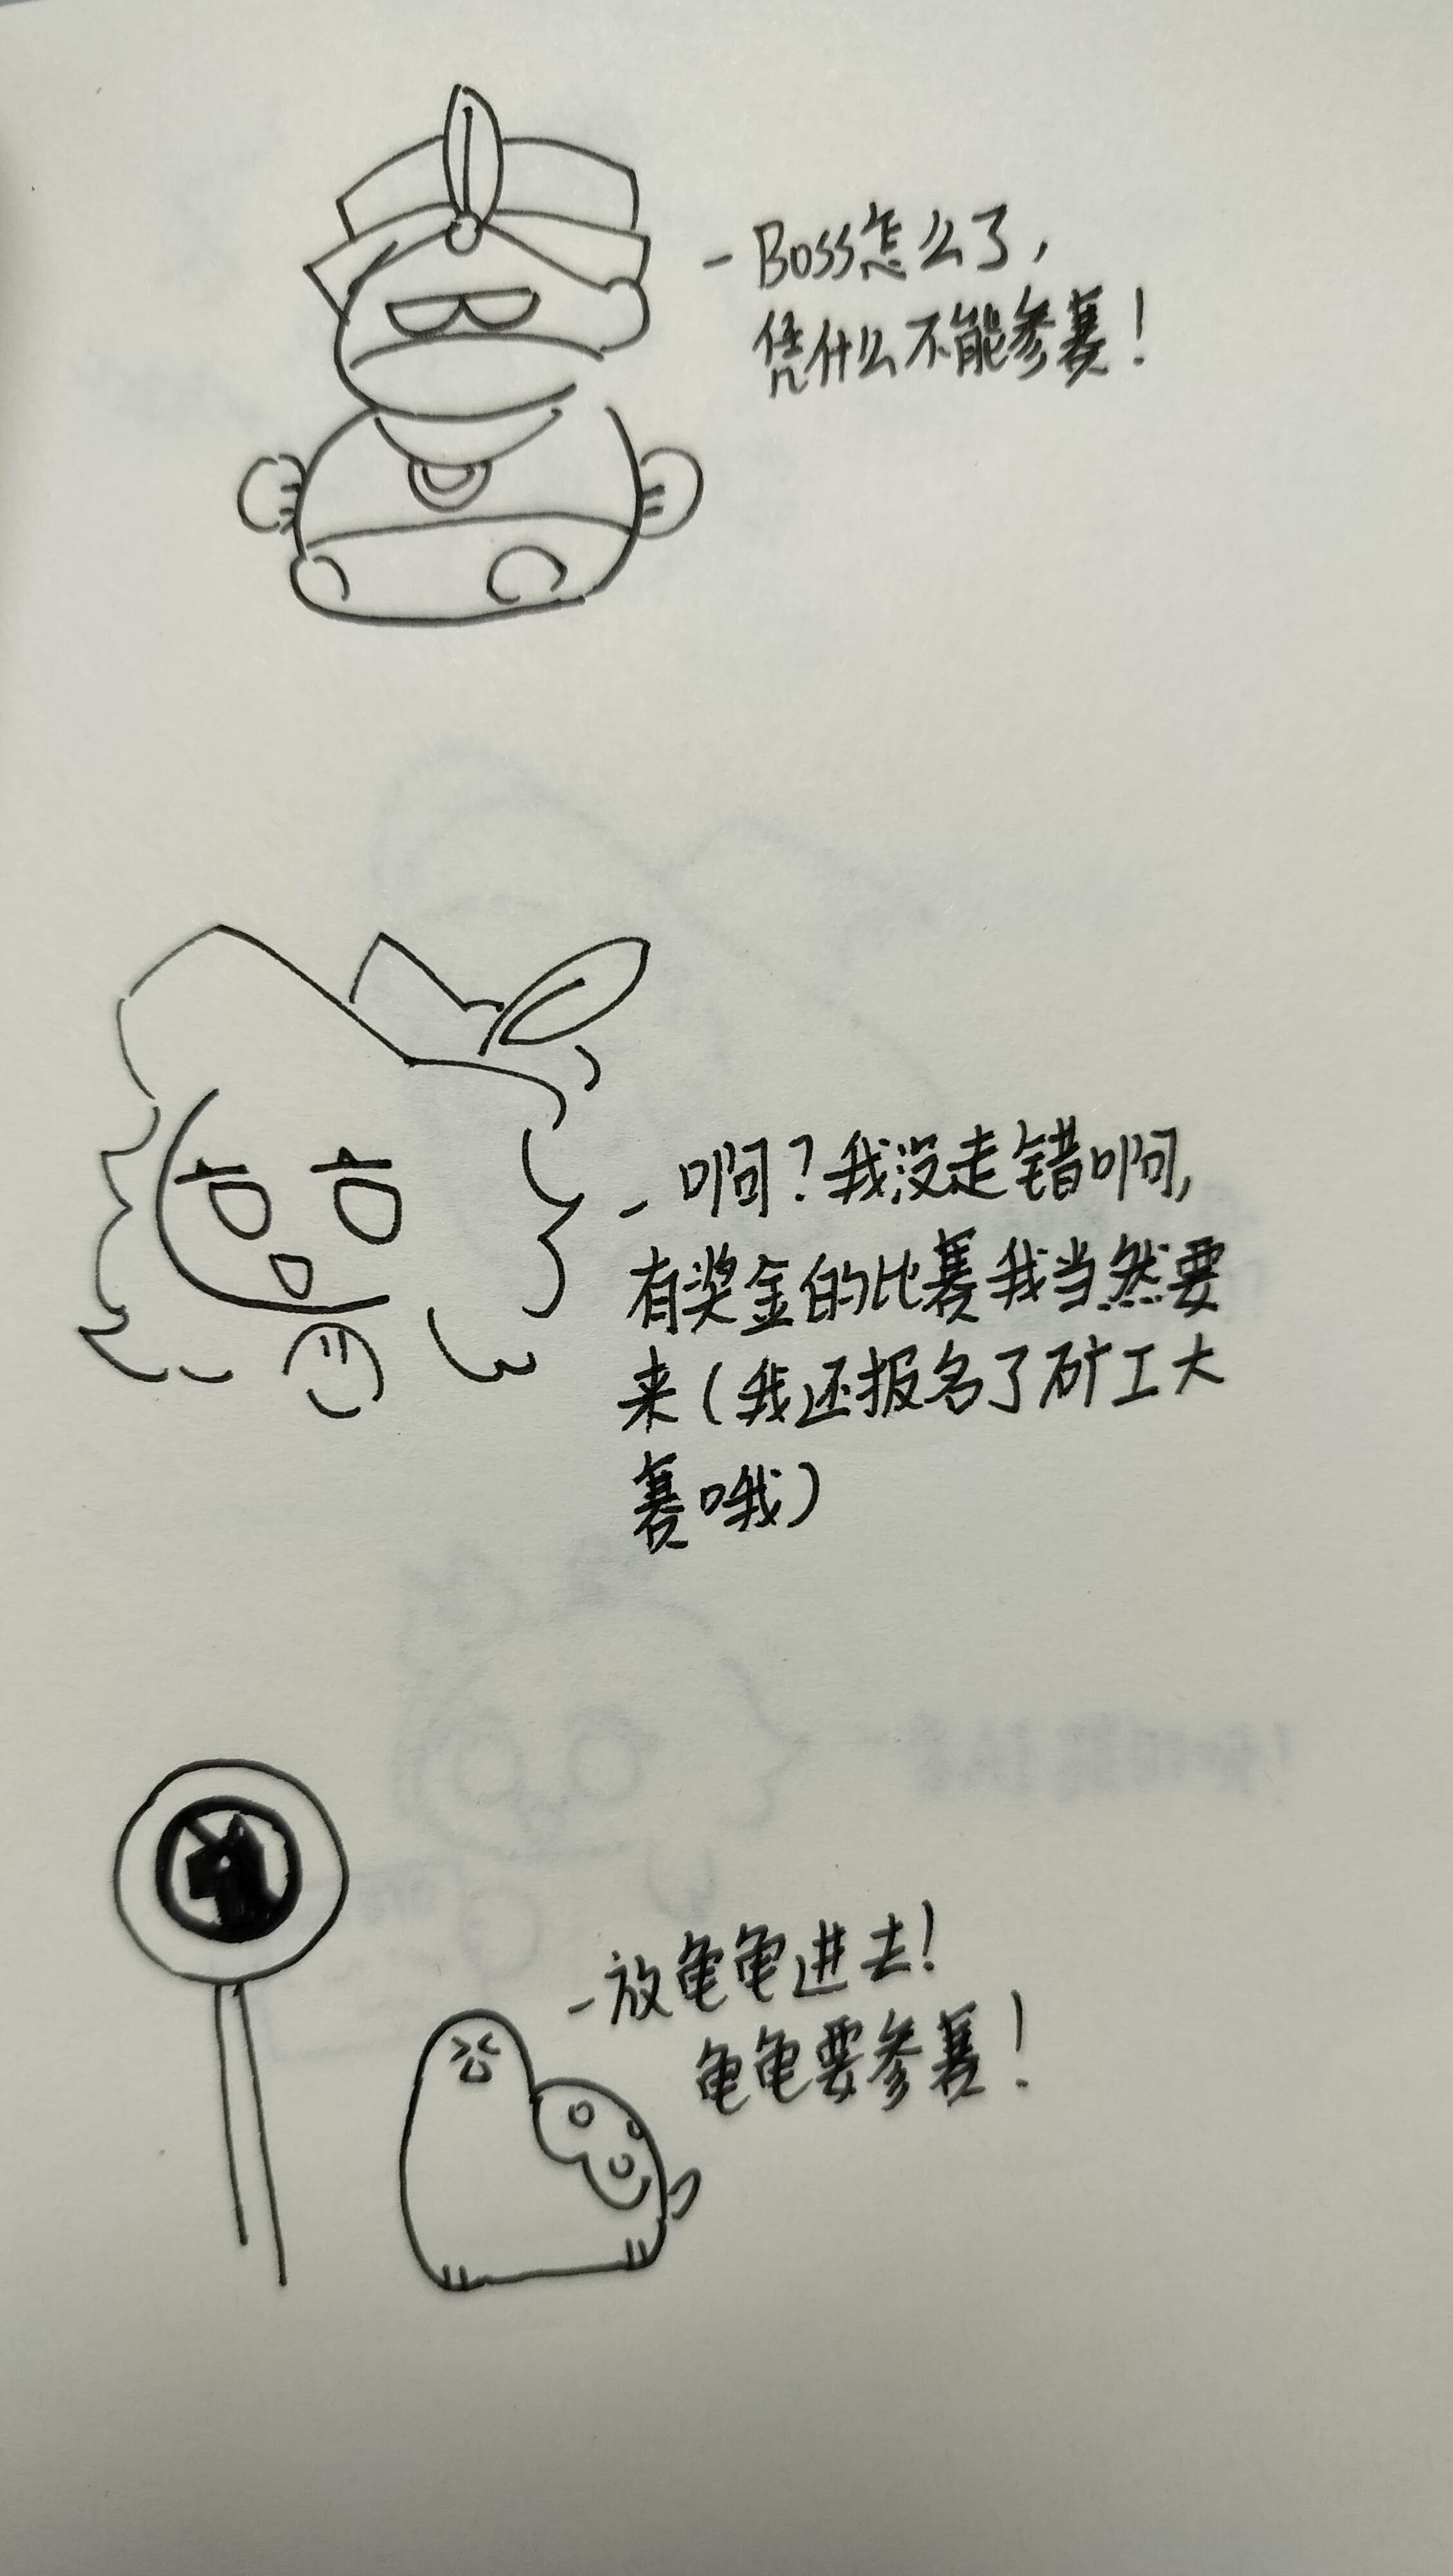 -Boss怎么了,
凭什么不能参赛!
-啊?我没走错啊,
有奖金的比赛我当然要
来(我还报名了矿工大
赛哦)
-放龟龟进去!
龟龟要参赛!